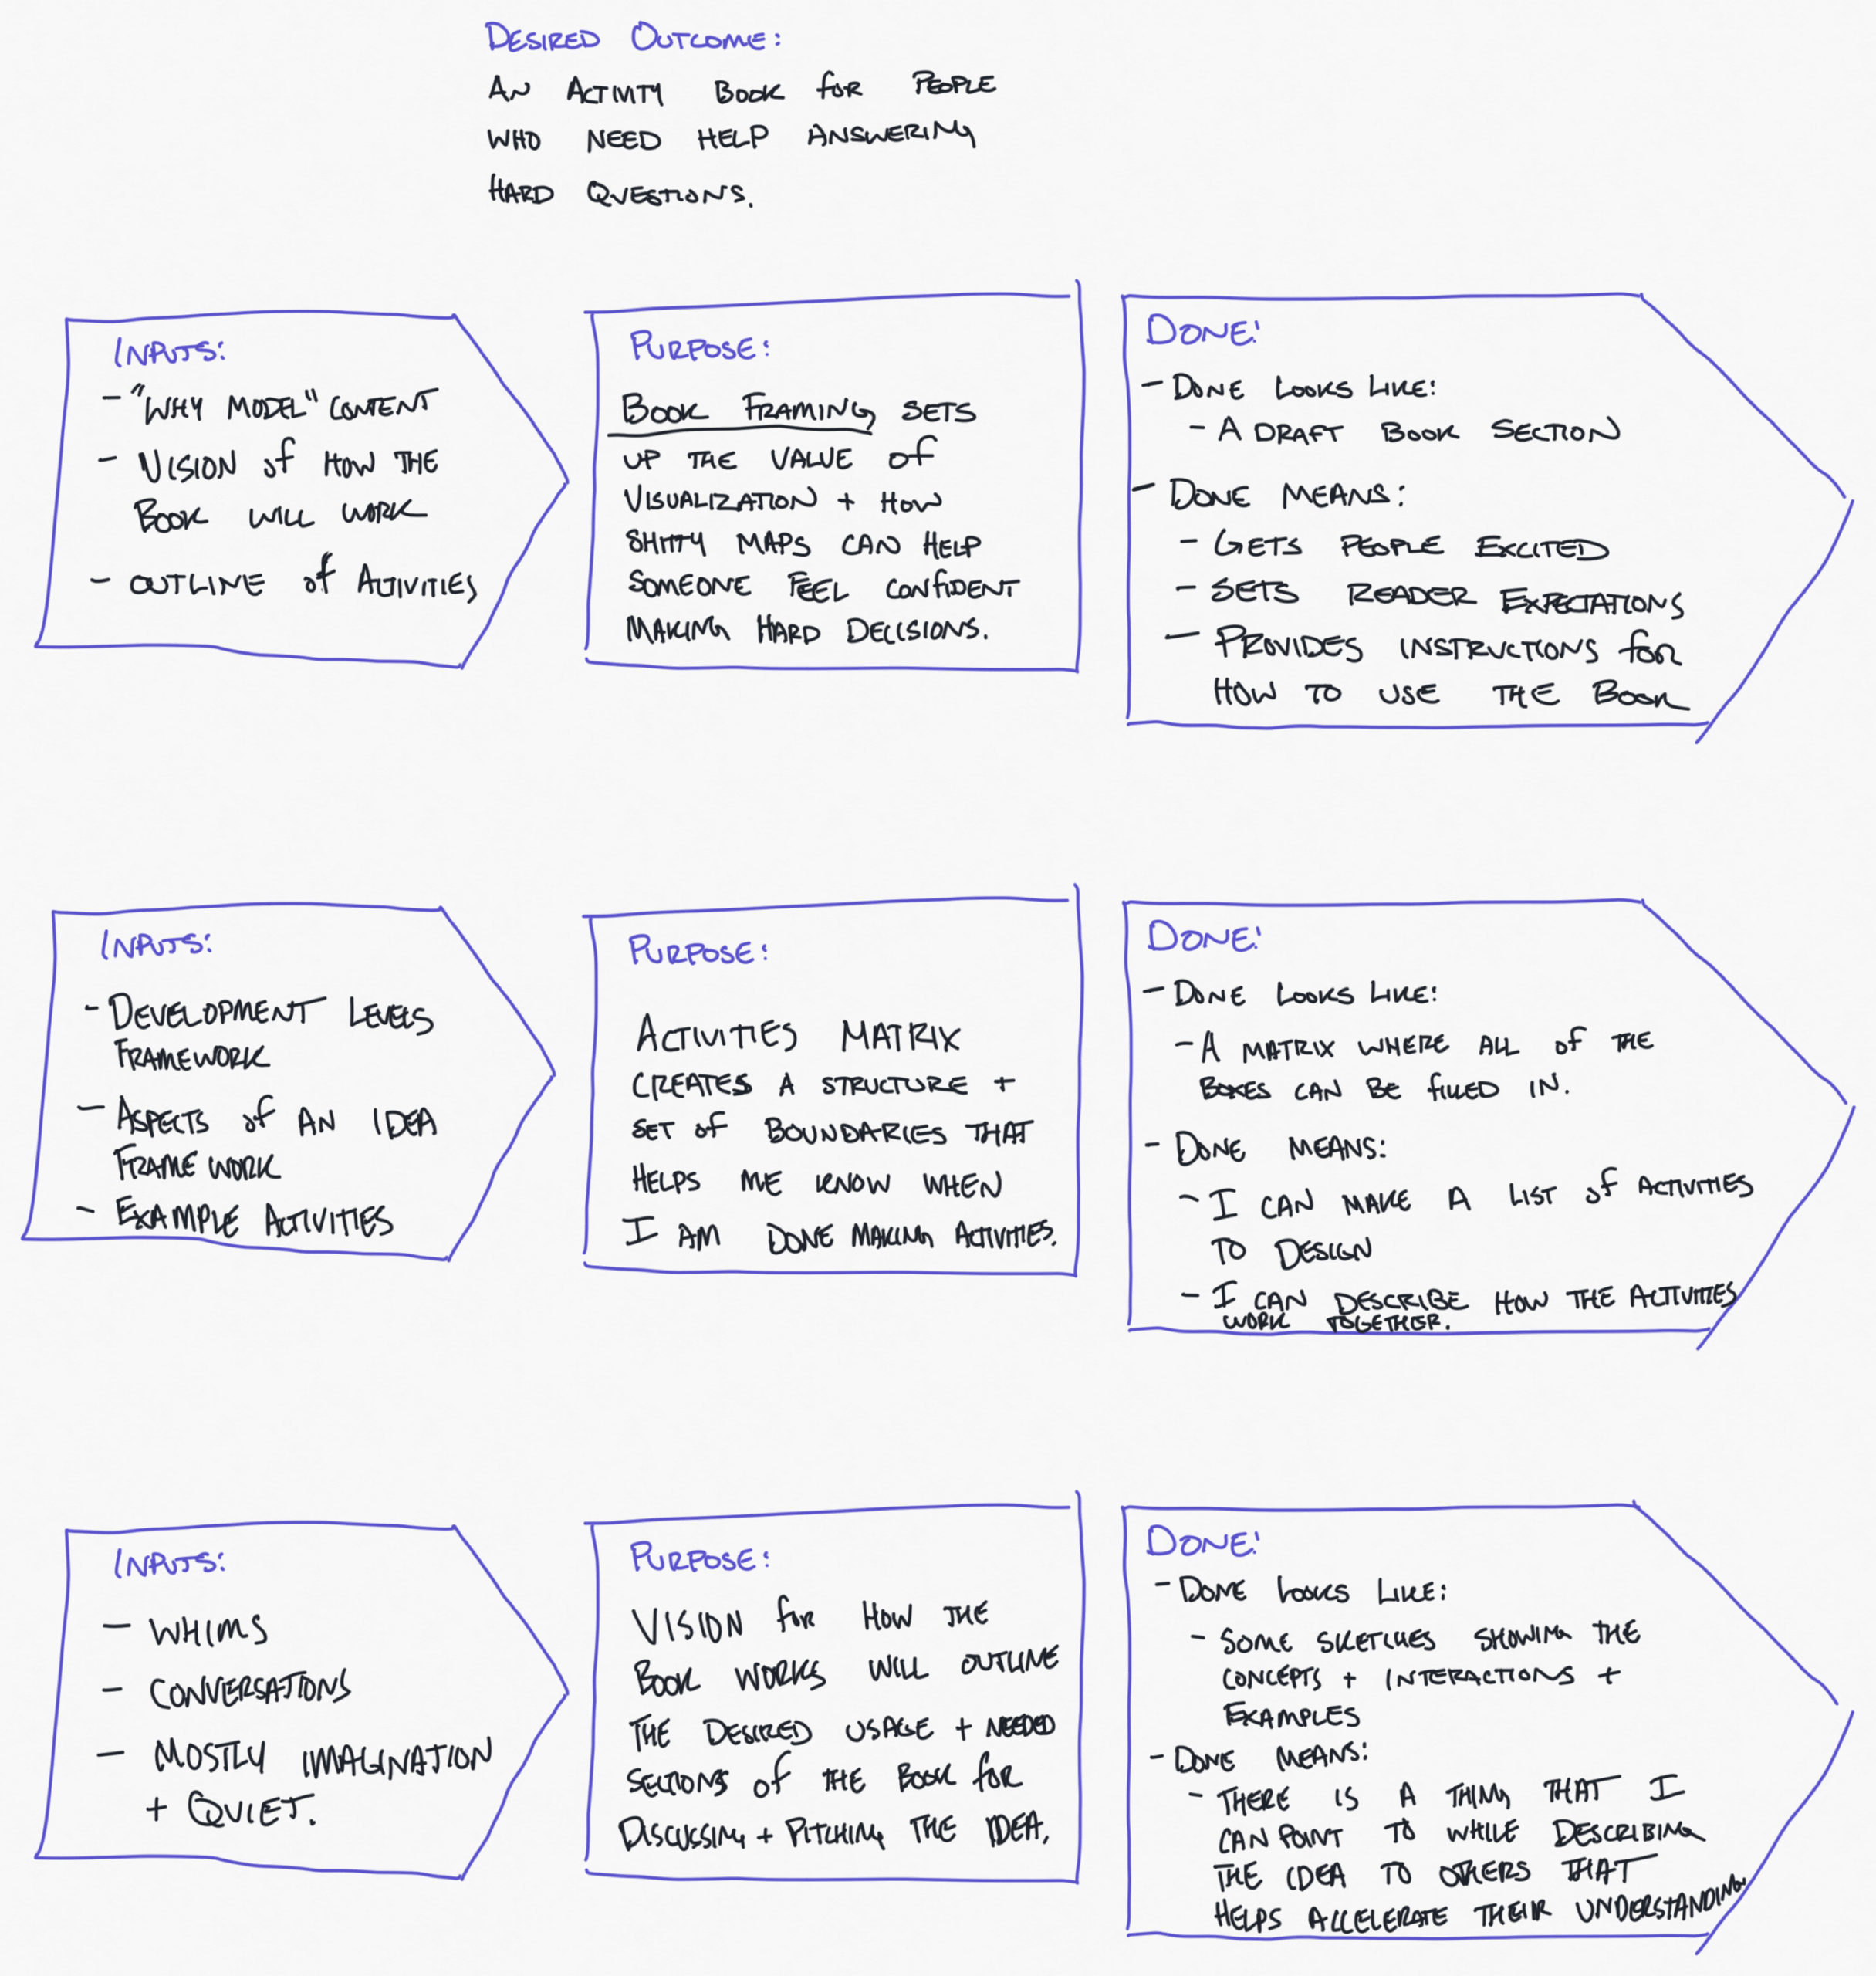 DESIRED OUTCOME:
AN ACTIVITY BOOK FOR PEOPLE
WHO NEED HELP ANSWERING
HARD QUESTIONS.
INPUTS:
- "WHY MODEL" CONTENT
- VISION OF HOW THE
BOOK WILL WORK
- OUTLINE OF ACTIVITIES
PURPOSE:
BOOK FRAMING SETS
UP THE VALUE OF
VISUALIZATION + HOW
SHITTY MAPS CAN HELP
SOMEONE FEEL CONFIDENT
MAKING HARD DECISIONS.
DONE!
- DONE LOOKS LIKE:
- A DRAFT BOOK SECTION
- DONE MEANS:
- GETS PEOPLE EXCITED
- SETS READER EXPECTATIONS
- PROVIDES INSTRUCTIONS FOR
HOW TO USE THE BOOK
INPUTS:
- DEVELOPMENT LEVELS
FRAMEWORK
- ASPECTS OF AN IDEA
FRAMEWORK
- EXAMPLE ACTIVITIES
PURPOSE:
ACTIVITIES MATRIX
CREATES A STRUCTURE +
SET OF BOUNDARIES THAT
HELPS ME KNOW WHEN
I AM DONE MAKING ACTIVITIES.
DONE!
- DONE LOOKS LIKE:
- A MATRIX WHERE ALL OF THE
BOXES CAN BE FILLED IN.
- DONE MEANS:
- I CAN MAKE A LIST OF ACTIVITIES
TO DESIGN
- I CAN DESCRIBE HOW THE ACTIVITIES
WORK TOGETHER.
INPUTS:
- WHIMS
- CONVERSATIONS
- MOSTLY IMAGINATION
+ QUIET.
PURPOSE:
VISION FOR HOW THE
BOOK WORKS WILL OUTLINE
THE DESIRED USAGE + NEEDED
SECTIONS OF THE BOOK FOR
DISCUSSING + PITCHING THE IDEA.
DONE!
- DONE LOOKS LIKE:
- SOME SKETCHES SHOWING THE
CONCEPTS + INTERACTIONS +
EXAMPLES
- DONE MEANS:
- THERE IS A THING THAT I
CAN POINT TO WHILE DESCRIBING
THE IDEA TO OTHERS THAT
HELPS ACCELERATE THEIR UNDERSTANDING